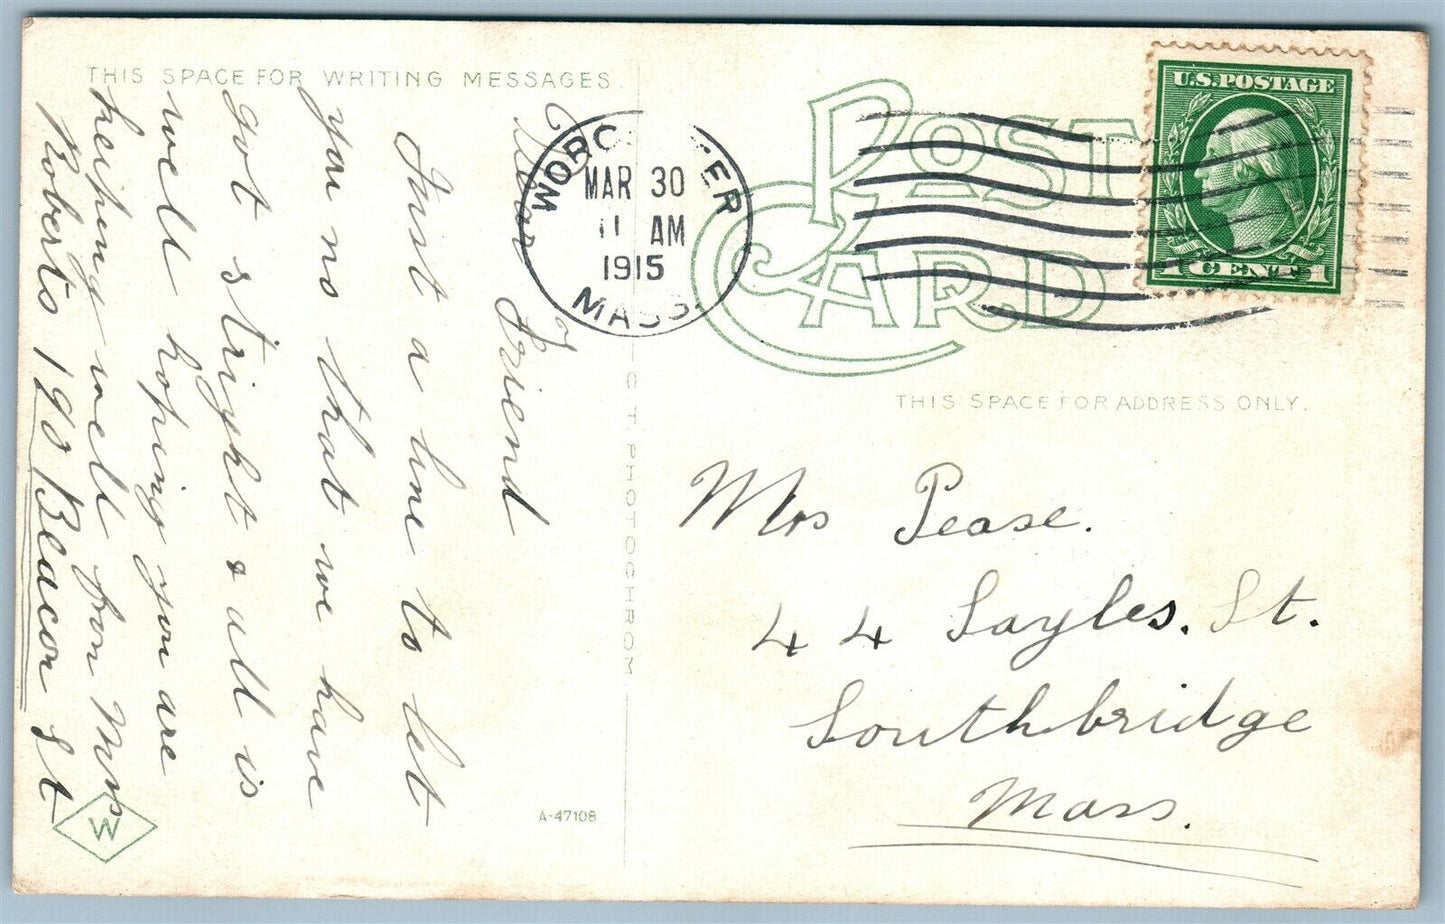 THIS SPACE FOR WRITING MESSAGES
Dear Friend
Just a line to let
you no that we have
got stright & all is
well hoping you are
keeping well from Mrs
Roberts 190 Beacon St
W
A-47108
C T PHOTOCHROM
WORC TER
MAR 30
11 AM
1915
MASS.
POST CARD
U.S. POSTAGE
1 CENT 1
THIS SPACE FOR ADDRESS ONLY.
Mrs Pease.
44 Sayles. St.
Southbridge
Mass.